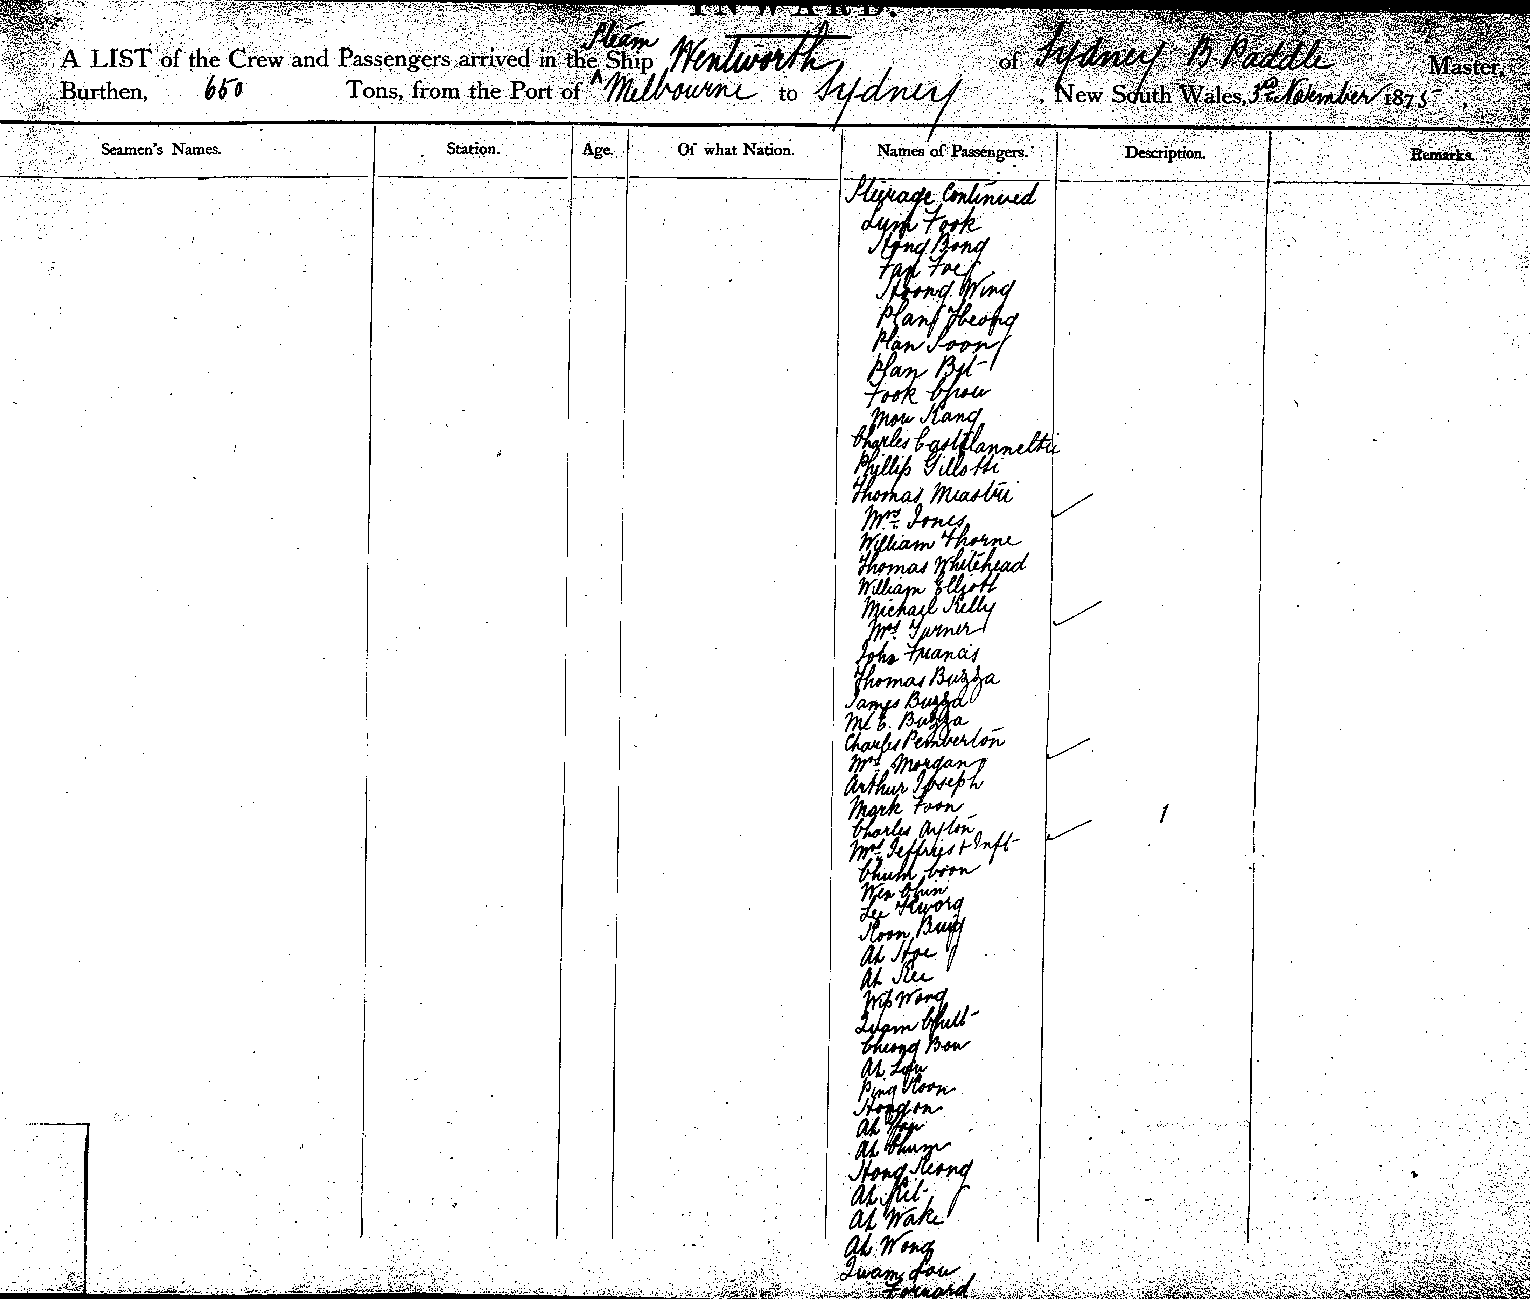 INWARD.
A LIST of the Crew and Passengers arrived in the Steam Ship Wentworth of Sydney B. Paddle Master,
Burthen, 650 Tons, from the Port of Melbourne to Sydney, New South Wales, 3rd November 1875
Seamen's Names. Station. Age. Of what Nation. Names of Passengers. Description. Remarks.
Steerage Continued
Lym Fook
Hong Bong
Fan Foey
Hoong Wing
Plan
Plan Soon
Plan
Fook Chow
Mow Kang
Charles
Phyllip Gillotti
Thomas
Mrs. Jones
William Thorne
Thomas Whitehead
William Elljott
Michael Kelly
Mrs. Turner
John Francis
Thomas Buzza
James Buzza
E. Buzza
Charles Pemberton
Mrs. Morgan
Arthur Joseph
Mark Foon
Charles Ayton 1
Mrs. Jeffrys & Inft
Chum
Wen Chin
Lee
Koon
Ah Hoe
Ah Kee
Wong
Quam
Cheong Bow
Ah Low
Ping Koon
Hongon
Ah Yap
Ah Chum
Hong Keong
Ah Kit
Ah Wake
Ah Wong
Quam Lou
Forward